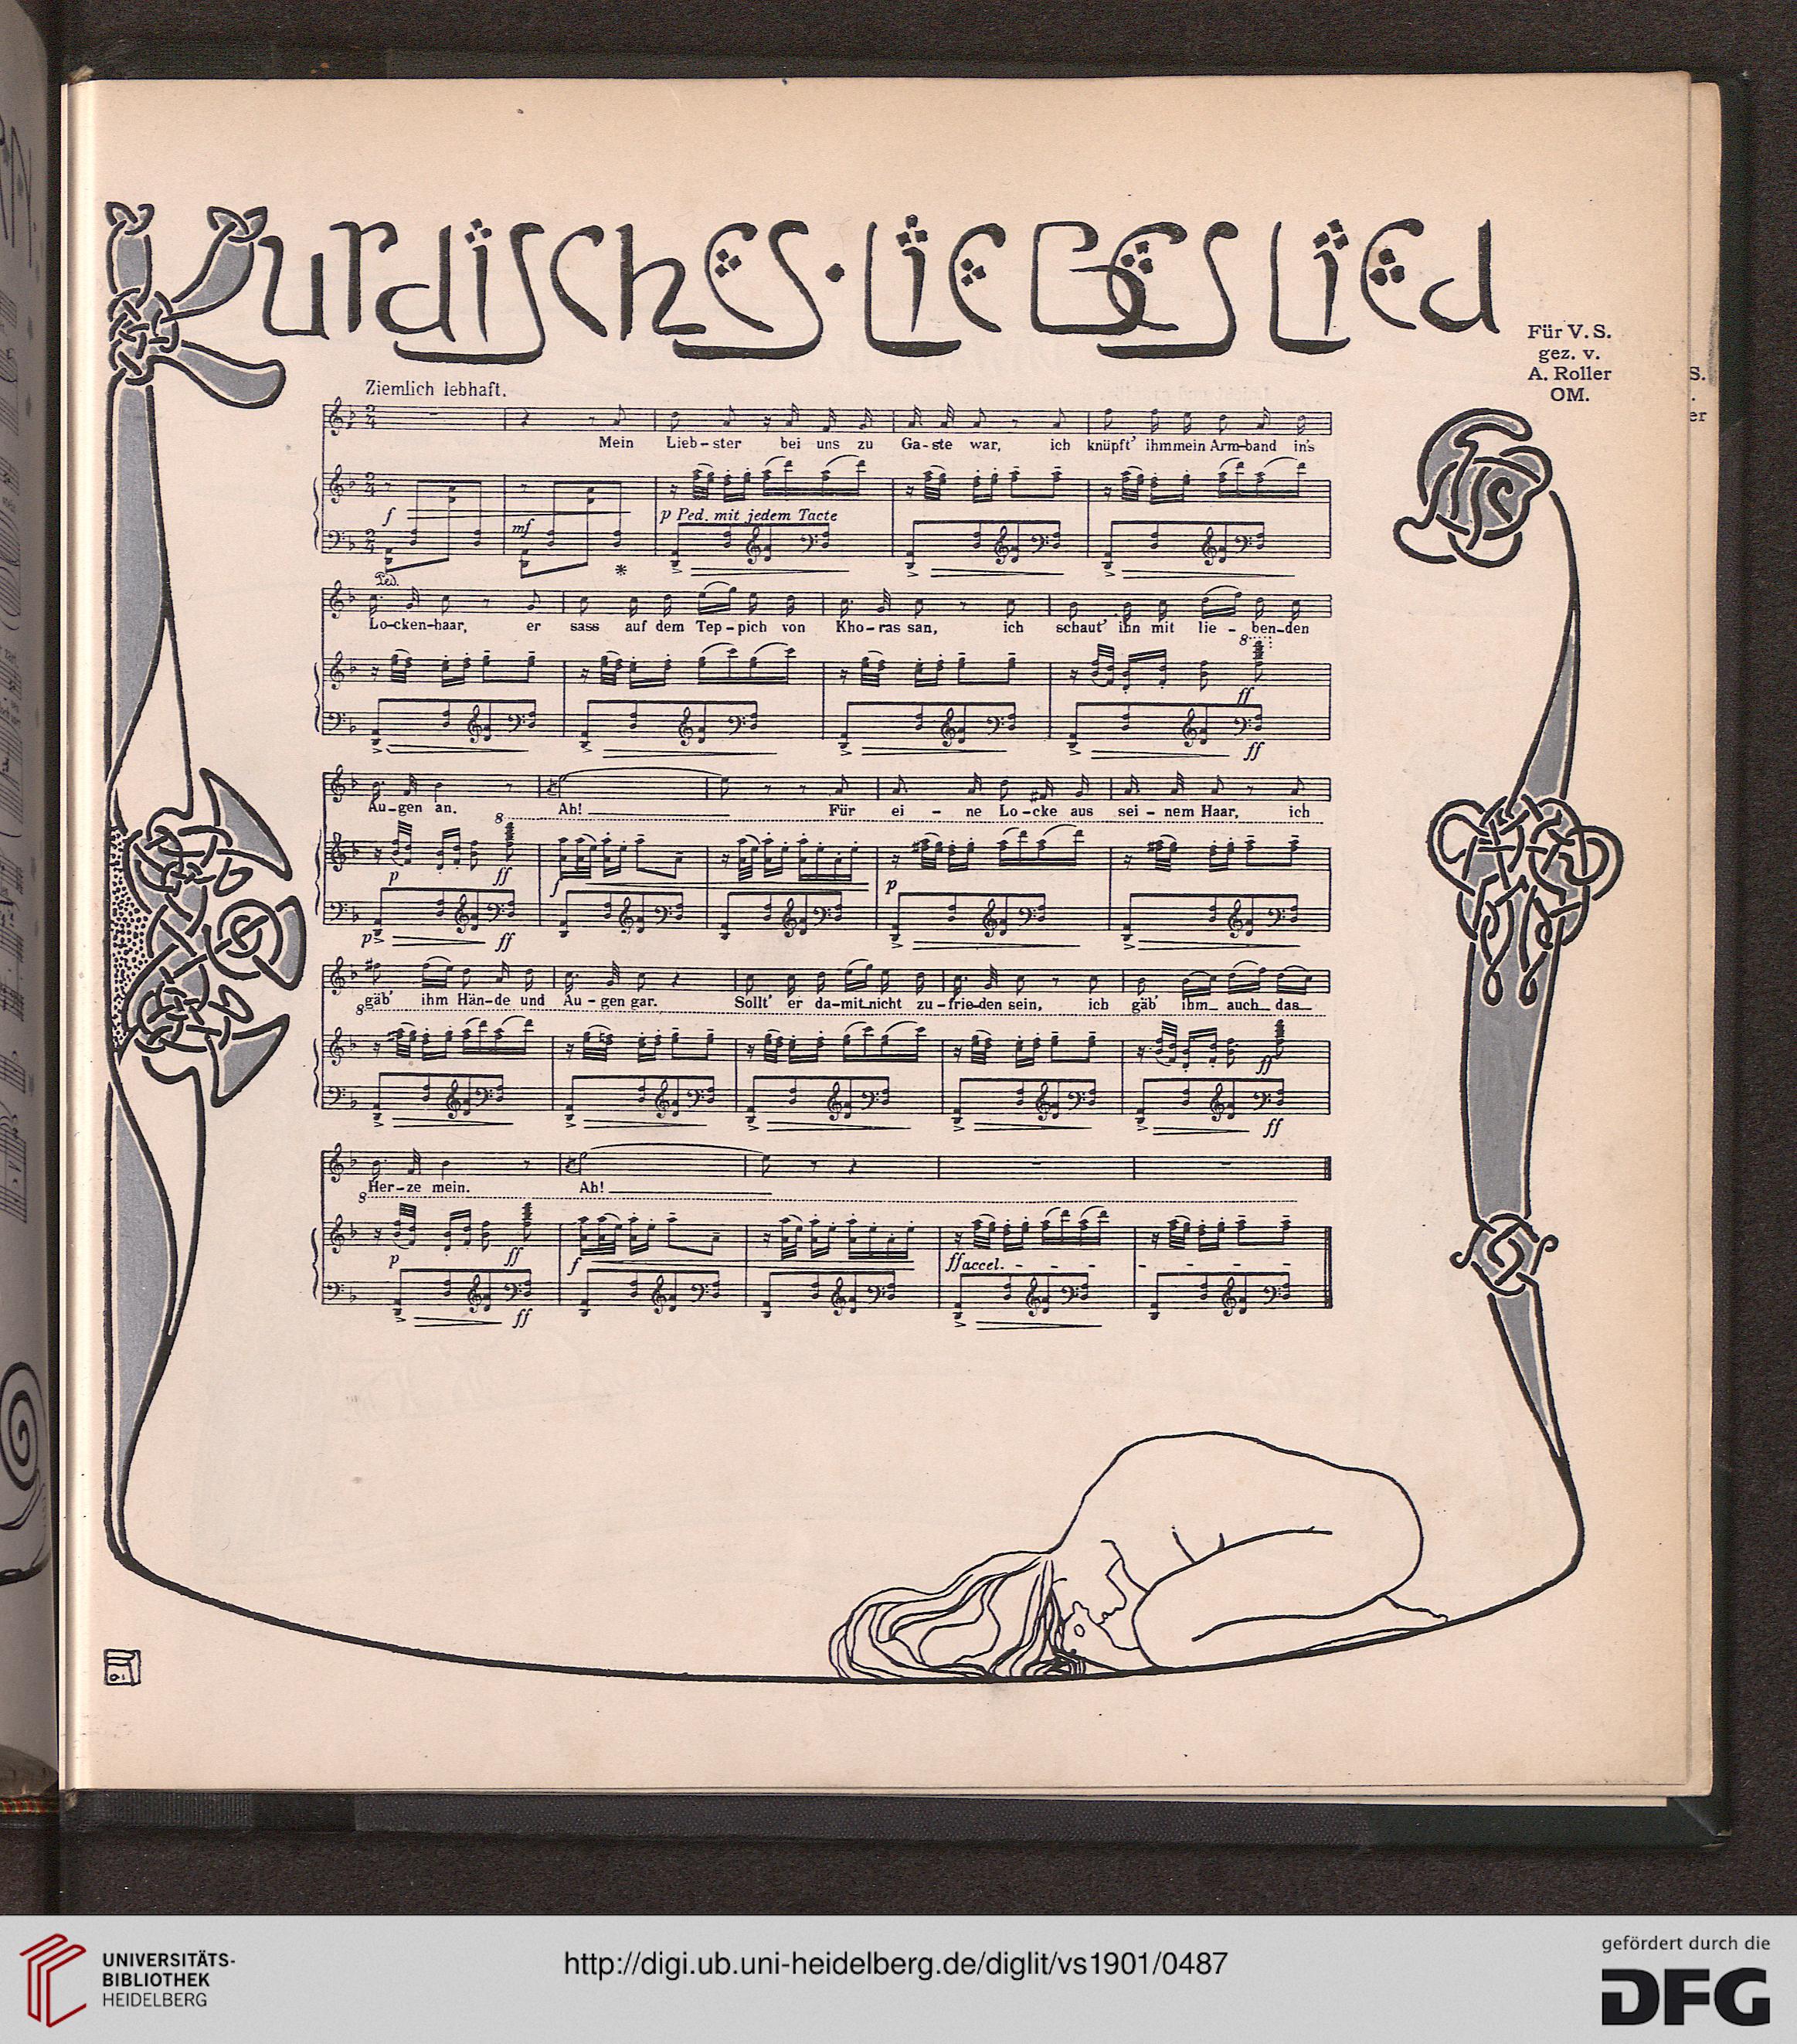 Kurdisches · Liebeslied
Für V. S.
gez. v.
A. Roller
OM.
Ziemlich lebhaft.
Mein Lieb-ster bei uns zu Ga-ste war, ich knüpft' ihm mein Arm-band in's
f mf p Ped. mit jedem Tacte
Ped. *
Lo-cken-haar, er sass auf dem Tep-pich von Kho-ras san, ich schaut' ihn mit lie - ben-den
8
ff
ff
Au-gen an. Ah! Für ei - ne Lo-cke aus sei - nem Haar, ich
8
p ff f p
p ff
gäb' ihm Hän-de und Au-gen gar. Sollt' er da-mit nicht zu-frie-den sein, ich gäb' ihm auch das
8
ff
ff
Her-ze mein. Ah!
8
p ff f ff accel. - - - - - - -
ff
UNIVERSITÄTS-
BIBLIOTHEK
HEIDELBERG
http://digi.ub.uni-heidelberg.de/diglit/vs1901/0487
gefördert durch die
DFG